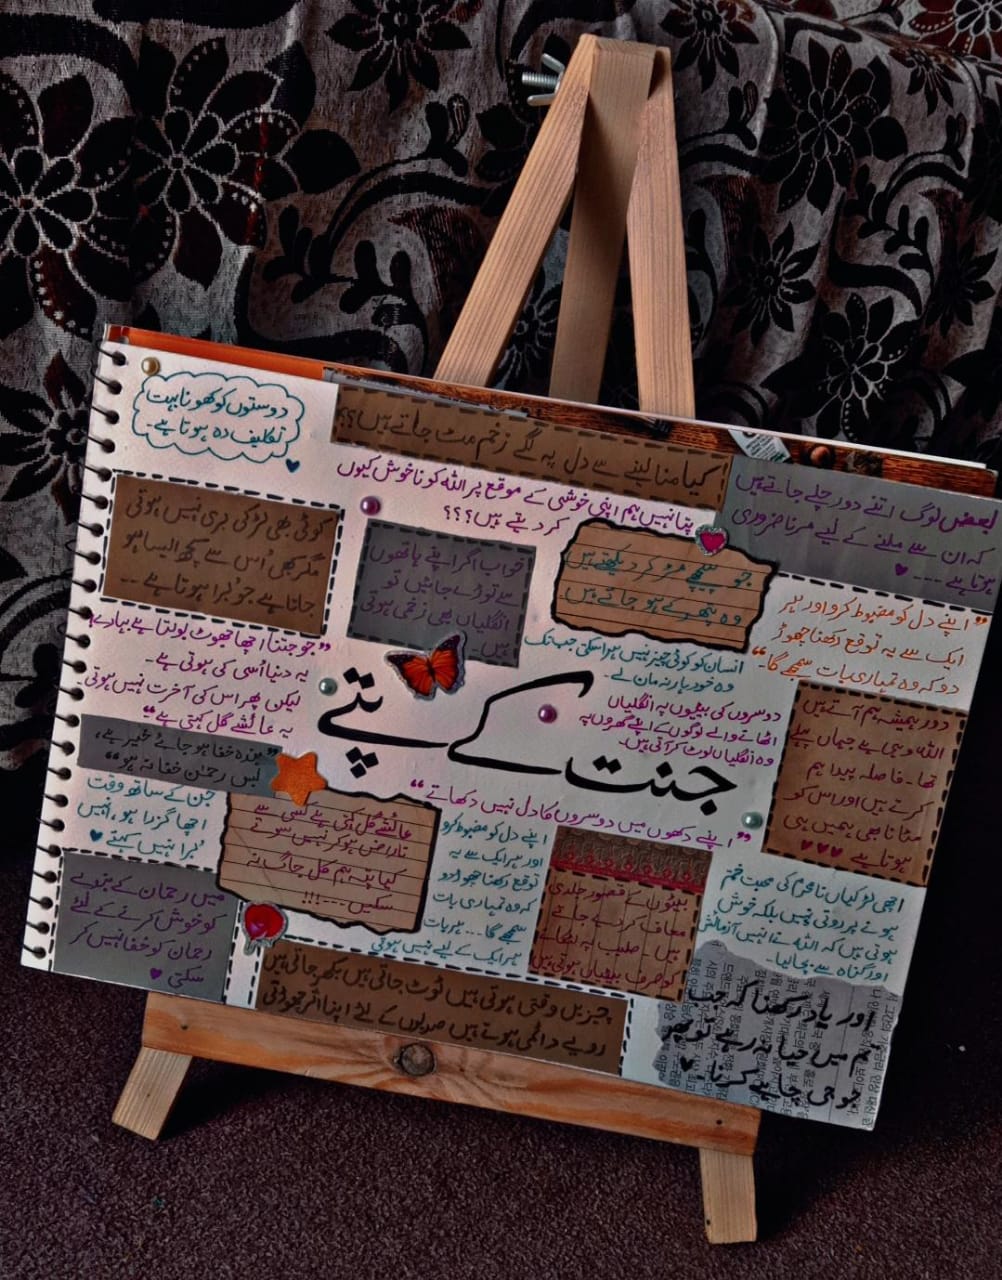 دوستوں کو کھونا بہت
تکلیف دہ ہوتا ہے۔
کیا منا لینے سے دل پہ لگے زخم مٹ جاتے ہیں؟؟
پتا نہیں ہم اپنی خوشی کے موقع پر اللہ کو ناخوش کیوں
کر دیتے ہیں؟؟؟
بعض لوگ اتنے دور چلے جاتے ہیں
کہ ان سے ملنے کے لیے مرنا ضروری
ہوتا ہے ----
کوئی بھی لڑکی بری نہیں ہوتی
مگر کبھی اُس سے کچھ ایسا ہو
جاتا ہے جو بُرا ہوتا ہے --
خواب اگر اپنے ہاتھوں
سے توڑے جائیں تو
انگلیاں بھی زخمی ہوتی
ہیں۔
جو پیچھے مڑ کر دیکھتے ہیں
وہ پتھر کے ہو جاتے ہیں
"اپنے دل کو مضبوط کرو اور ہر
ایک سے یہ توقع رکھنا چھوڑ
دو کہ وہ تمہاری بات سمجھے گا۔"
"جو جتنا اچھا جھوٹ بولتا ہے بہارے
یہ دنیا اُسی کی ہوتی ہے۔
لیکن پھر اس کی آخرت نہیں ہوتی
یہ عائشے گل کہتی ہے"
انسان کو کوئی چیز نہیں ہرا سکتی جب تک
وہ خود ہار نہ مان لے۔
دوسروں کی بیٹیوں پہ انگلیاں
اٹھانے والے لوگوں کے اپنے گھروں پہ
وہ انگلیاں لوٹ کر آتی ہیں۔
جنت کے پتے
دور ہمیشہ ہم آتے ہیں
اللہ وہی ہے جہاں پہلے
تھا۔ فاصلہ پیدا ہم
کرتے ہیں اور اس کو
مٹانا بھی ہمیں ہی
ہوتا ہے
"بندہ خفا ہو جائے خیر ہے،
بس رحمٰن خفا نہ ہو"
"اپنے دکھوں میں دوسروں کا دل نہیں دکھاتے"
جن کے ساتھ وقت
اچھا گزرا ہو، انہیں
بُرا نہیں کہتے
عائشے گل کہتی ہے کسی سے
ناراض ہو کر نہیں سوتے
کیا پتہ ہم کل جاگ نہ
سکیں ---!!!
اپنے دل کو مضبوط کرو
اور ہر ایک سے یہ
توقع رکھنا چھوڑ دو
کہ وہ تمہاری بات
سمجھے گا... ہر بات
ہر ایک کے لیے نہیں ہوتی
بیٹوں کے قصور جلدی
معاف کر دئیے جاتے
ہیں۔ صلیب پہ لٹکانے
کو صرف بیٹیاں ہوتی ہیں
اچھی لڑکیاں نامحرم کی محبت ختم
ہونے پر روتی نہیں بلکہ خوش
ہوتی ہیں کہ اللہ نے انہیں آزمائش
اور گناہ سے بچا لیا۔
میں رحمان کے بندے
کو خوش کرنے کے لئے
رحمان کو خفا نہیں کر
سکتی
چیزیں وقتی ہوتی ہیں ٹوٹ جاتی ہیں بکھر جاتی ہیں
رویے دائمی ہوتے ہیں صدیوں کے لئے اپنا اثر چھوڑتی
اور یاد رکھنا کہ جب
تم میں حیا نہ رہے تو پھر
جو جی چاہے کرنا۔